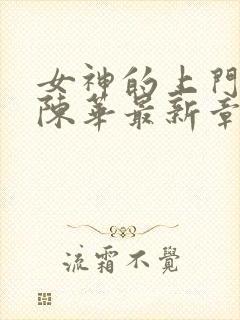 女神的上門
陳華最新章
流霜不覺